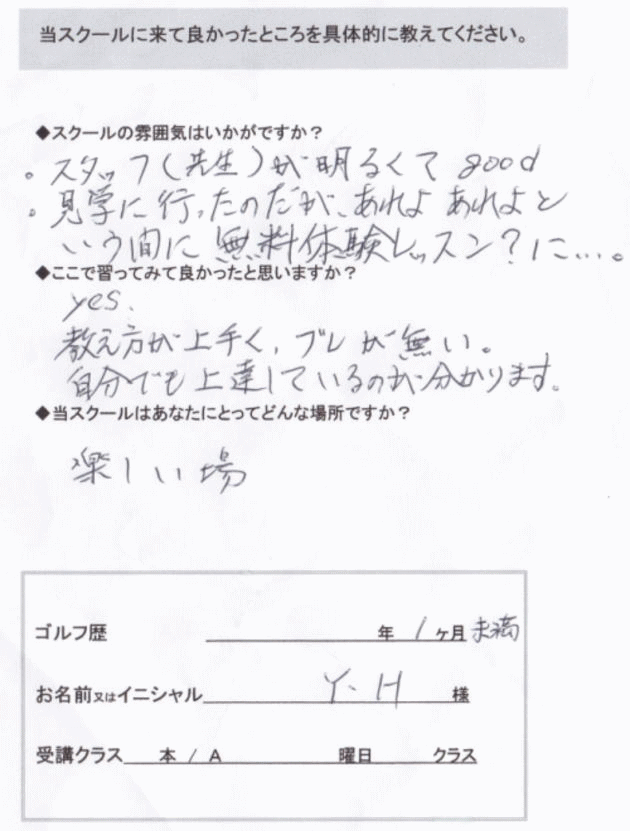 当スクールに来て良かったところを具体的に教えてください。
◆スクールの雰囲気はいかがですか？
。スタッフ(先生)が明るくて good
。見学に行ったのだが、あれよ あれよと
いう間に 無料体験レッスン？に…。
◆ここで習ってみて良かったと思いますか？
yes.
教え方が上手く、ブレが無い。
自分でも上達しているのが分かります。
◆当スクールはあなたにとってどんな場所ですか？
楽しい場
ゴルフ歴 年 1 ヶ月 未満
お名前又はイニシャル Y.H 様
受講クラス 本 / A 曜日 クラス